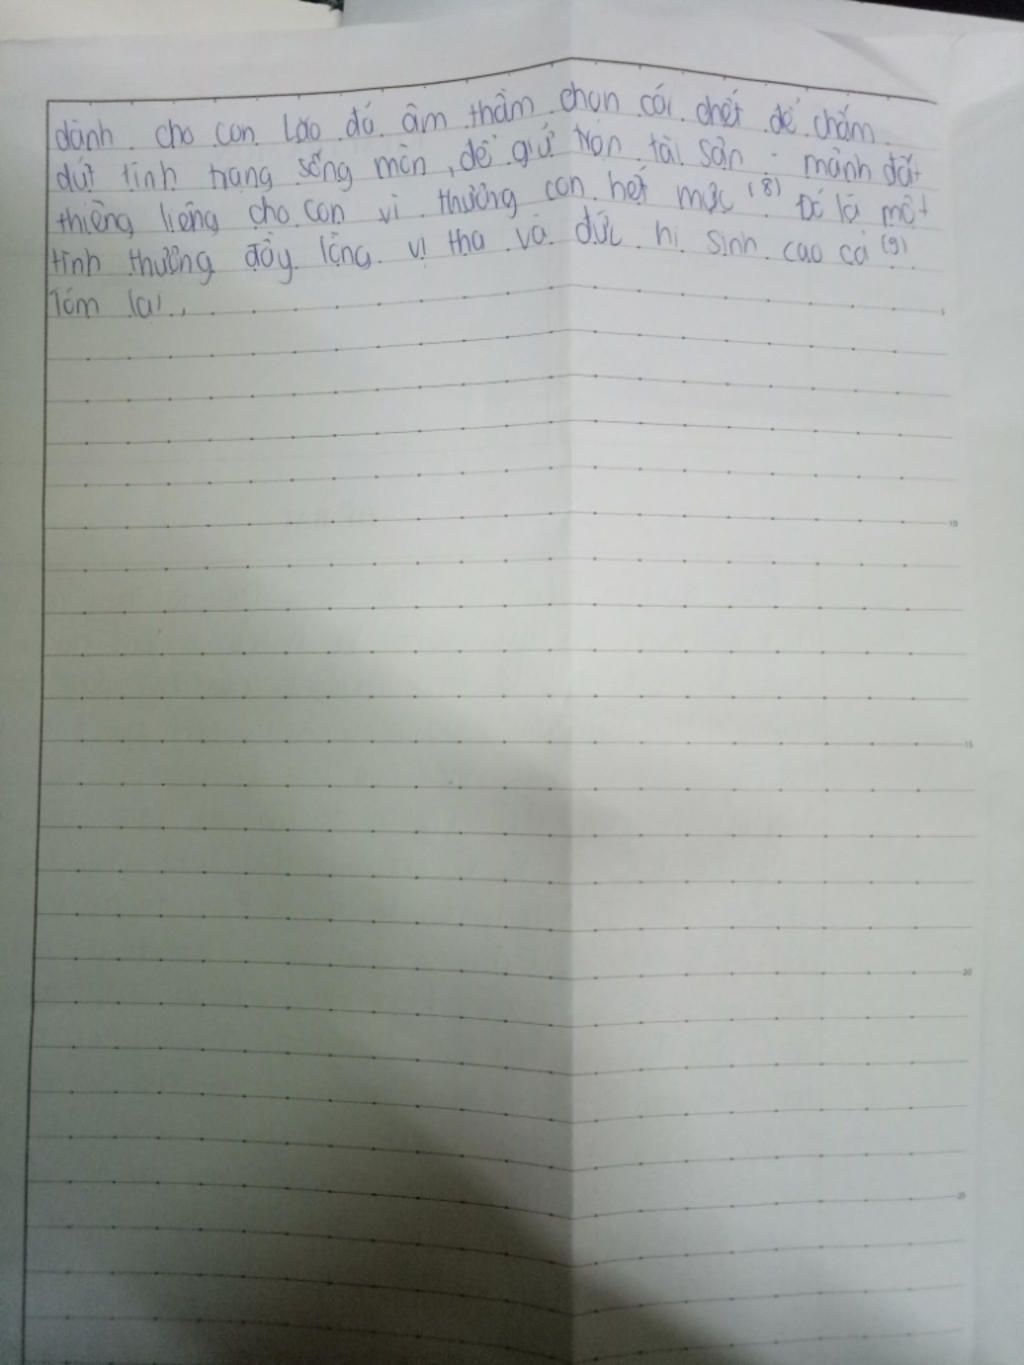 dành cho con. Lão đã âm thầm chọn cái chết để chấm
dứt tình trạng sống mòn, để giữ trọn tài sản - mảnh đất
thiêng liêng cho con vì thương con hết mực (8). Đó là một
tình thương đầy lặng vị tha và đức hi sinh cao cả (9).
Tóm lại,
5
10
15
20
25